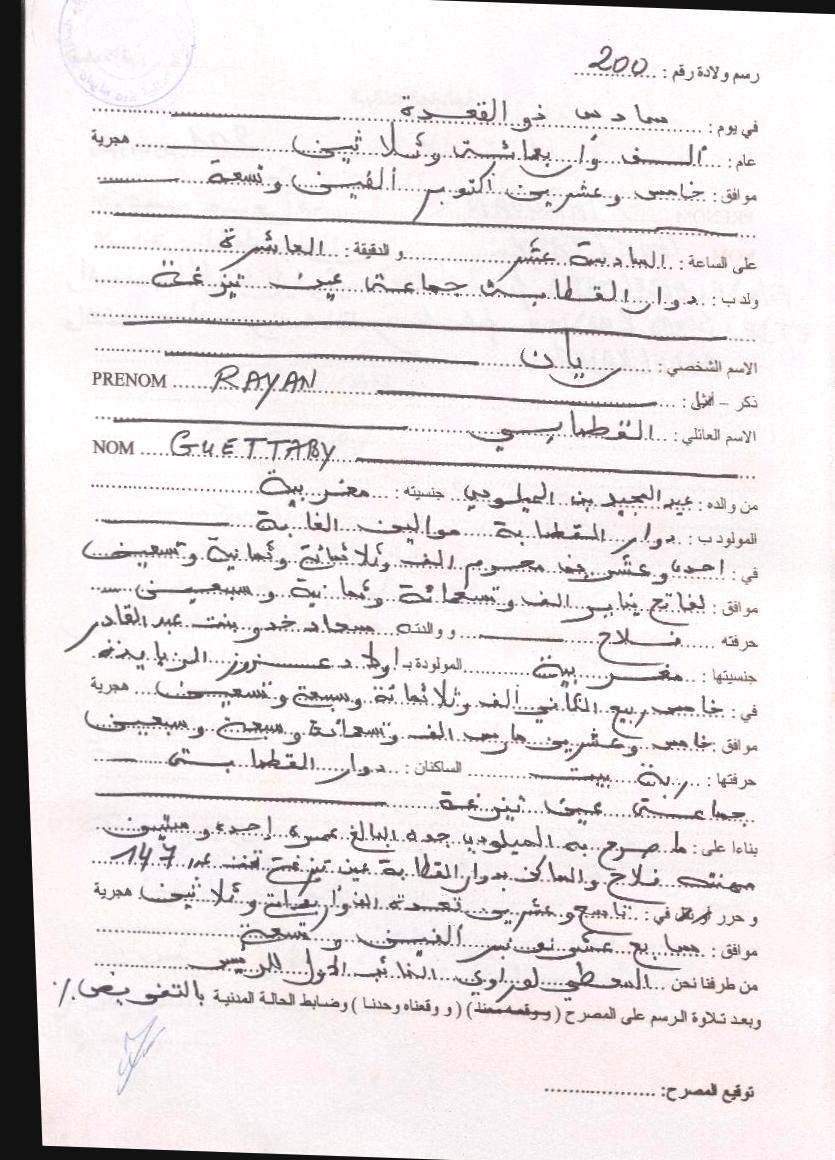 رسم ولادة رقم : 200
في يوم : سادس ذو القعدة
عام : ألف وأربعمائة وثلاثين هجرية
موافق : خامس وعشرين أكتوبر ألفين وتسعة
على الساعة : الحادية عشر والدقيقة : العاشرة
ولد ب : دوار القطابة جماعة عين تيزغة
الاسم الشخصي : ريان
ذكر – أنثى : PRENOM RAYAN
الاسم العائلي : القطابي
NOM GUETTABY
من والده : عبد المجيد بن الميلودي جنسيته : مغربية
المولود ب : دوار القطابة موالين الغابة
في : احدى وعشرين محرم الف وثلاثمائة وثمانية وتسعين
موافق : لفاتح يناير الف وتسعمائة وثمانية وسبعين
حرفته فلاح ووالدته سعاد خدو بنت عبد القادر
جنسيتها : مغربية المولودة بـ اولاد عزوز الزيايدة
في : خامس ربيع الثاني ألف وثلاثمائة وسبعة وتسعين هجرية
موافق : خامس وعشرين مارس الف وتسعمائة وسبعة وسبعين
حرفتها : ربة بيت الساكنان : دوار القطابة
جماعة عين تيزغة
بناءا على : ما صرح به الميلودي جده البالغ عمره إحدى و
مهنته فلاح والساكن بدوار القطابة عين تيزغة تحت عدد 147
و حرر في : تاسع وعشرين قعدة الف وأربعمائة وثلاثين هجرية
موافق : سابع عشر نونبر الفين وتسعة
من طرفنا نحن المعطي لغزاوي النائب الاول للرئيس
وبعد تلاوة الرسم على المصرح ( ووقعه معنا ) ( ووقعناه وحدنا ) وضابط الحالة المدنية بالتفويض ./.
توقيع المصرح: